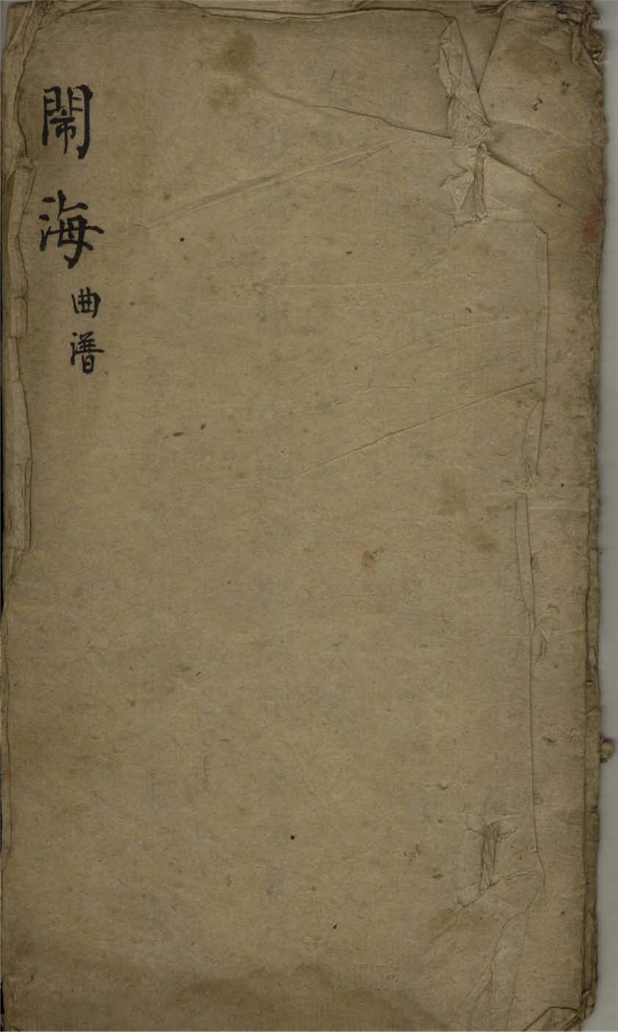 鬧海
曲譜